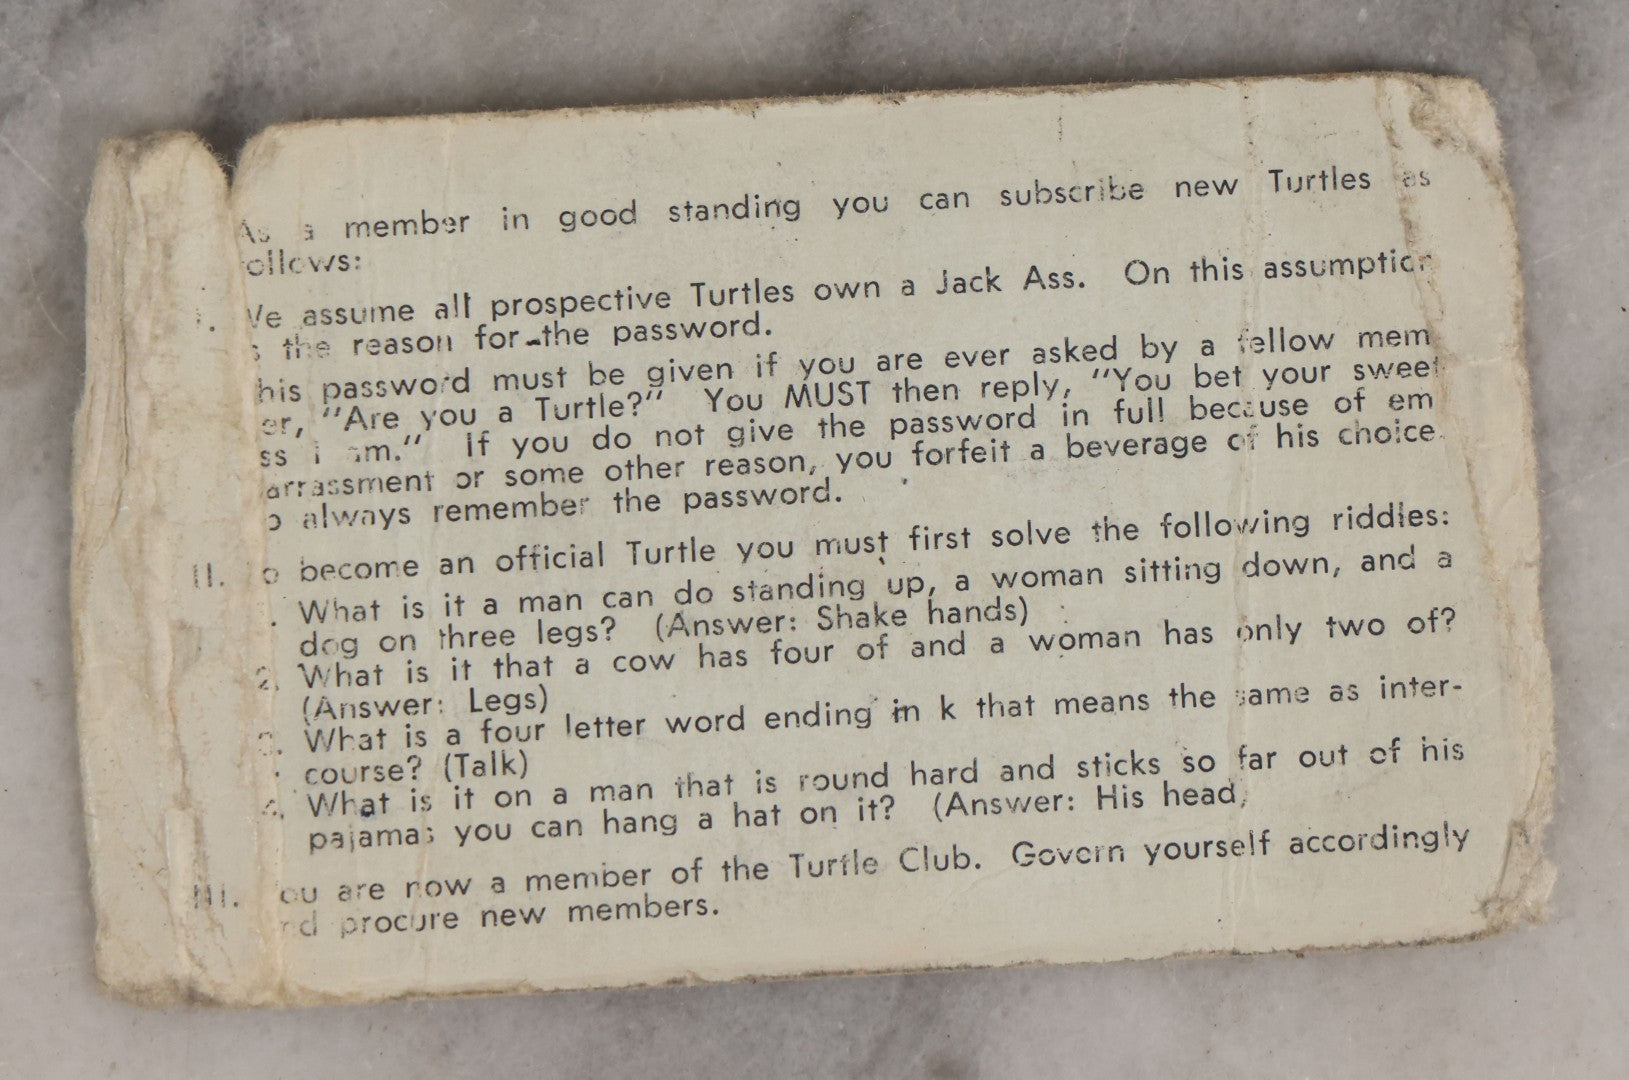 As a member in good standing you can subscribe new Turtles as
ollows:
I. We assume all prospective Turtles own a Jack Ass. On this assumption
s the reason for the password.
his password must be given if you are ever asked by a fellow mem
er, "Are you a Turtle?" You MUST then reply, "You bet your sweet
ss I am." If you do not give the password in full because of em
arrassment or some other reason, you forfeit a beverage of his choice.
o always remember the password.
II. o become an official Turtle you must first solve the following riddles:
. What is it a man can do standing up, a woman sitting down, and a
dog on three legs? (Answer: Shake hands)
2. What is it that a cow has four of and a woman has only two of?
(Answer: Legs)
3. What is a four letter word ending in k that means the same as inter-
course? (Talk)
4. What is it on a man that is round hard and sticks so far out of his
pajamas you can hang a hat on it? (Answer: His head)
III. ou are now a member of the Turtle Club. Govern yourself accordingly
nd procure new members.